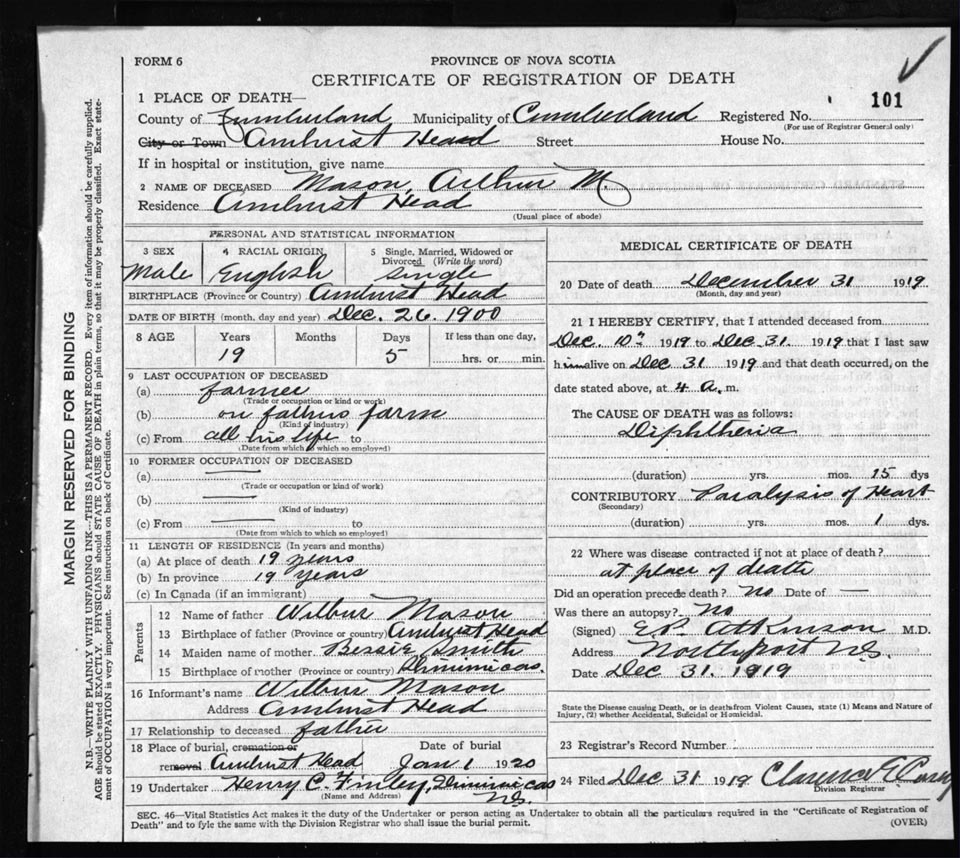 FORM 6
PROVINCE OF NOVA SCOTIA
CERTIFICATE OF REGISTRATION OF DEATH
101
1 PLACE OF DEATH—
County of Cumberland Municipality of Cumberland Registered No.
(For use of Registrar General only)
City or Town Amhurst Head Street House No.
If in hospital or institution, give name
2 NAME OF DECEASED Mason, Arthur M.
Residence Amhurst Head
(Usual place of abode)
PERSONAL AND STATISTICAL INFORMATION
3 SEX 4 RACIAL ORIGIN 5 Single, Married, Widowed or Divorced (Write the word)
Male English Single
BIRTHPLACE (Province or Country) Amhurst Head
DATE OF BIRTH (month, day and year) Dec. 26. 1900
8 AGE Years Months Days If less than one day,
19 5 hrs. or min.
9 LAST OCCUPATION OF DECEASED
(a) farmer
(Trade or occupation or kind or work)
(b) on fathers farm
(Kind of industry)
(c) From all his life to
(Date from which to which so employed)
10 FORMER OCCUPATION OF DECEASED
(a) —
(Trade or occupation or kind of work)
(b) —
(Kind of industry)
(c) From — to
(Date from which to which so employed)
11 LENGTH OF RESIDENCE (In years and months)
(a) At place of death 19 years
(b) In province 19 years
(c) In Canada (if an immigrant)
Parents
12 Name of father Wilbur Mason
13 Birthplace of father (Province or country) Amhurst Head
14 Maiden name of mother Bessie Smith
15 Birthplace of mother (Province or country) Shinimicas.
16 Informant's name Wilbur Mason
Address Amhurst Head
17 Relationship to deceased father
18 Place of burial, cremation or Date of burial
removal Amhurst Head Jan 1 1920
19 Undertaker Henry C. Finley, Shinimicas
(Name and Address) N.S.
MEDICAL CERTIFICATE OF DEATH
20 Date of death December 31 1919
(Month, day and year)
21 I HEREBY CERTIFY, that I attended deceased from
Dec. 10th 1919 to Dec. 31. 1919 that I last saw
him alive on Dec 31 1919 and that death occurred, on the
date stated above, at 4 a. m.
The CAUSE OF DEATH was as follows:
Diphtheria
(duration) yrs. mos. 15 dys
CONTRIBUTORY Paralysis of Heart
(Secondary)
(duration) yrs. mos. 1 dys.
22 Where was disease contracted if not at place of death?
at place of death
Did an operation precede death? No Date of —
Was there an autopsy? No
(Signed) E.P. Atkinson M.D.
Address Northport N.S.
Date Dec 31. 1919
State the Disease causing Death, or in deaths from Violent Causes, state (1) Means and Nature of
Injury, (2) whether Accidental, Suicidal or Homicidal.
23 Registrar's Record Number
24 Filed Dec 31 1919 Clarence E
Division Registrar
SEC. 46—Vital Statistics Act makes it the duty of the Undertaker or person acting as Undertaker to obtain all the particulars required in the "Certificate of Registration of
Death" and to fyle the same with the Division Registrar who shall issue the burial permit.
(OVER)
MARGIN RESERVED FOR BINDING
N.B.—WRITE PLAINLY WITH UNFADING INK—THIS IS A PERMANENT RECORD. Every item of information should be carefully supplied.
AGE should be stated EXACTLY. PHYSICIANS should STATE CAUSE OF DEATH in plain terms, so that it may be properly classified. Exact state-
ment of OCCUPATION is very important. See instructions on back of Certificate.